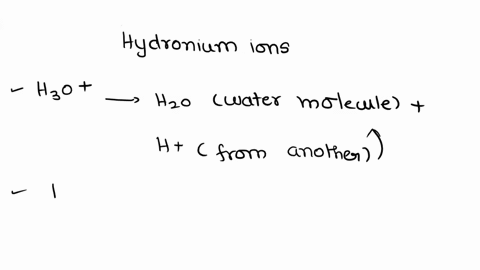 Hydronium ions
- H3O+ → H2O (water molecule) +
H+ (from another))
-